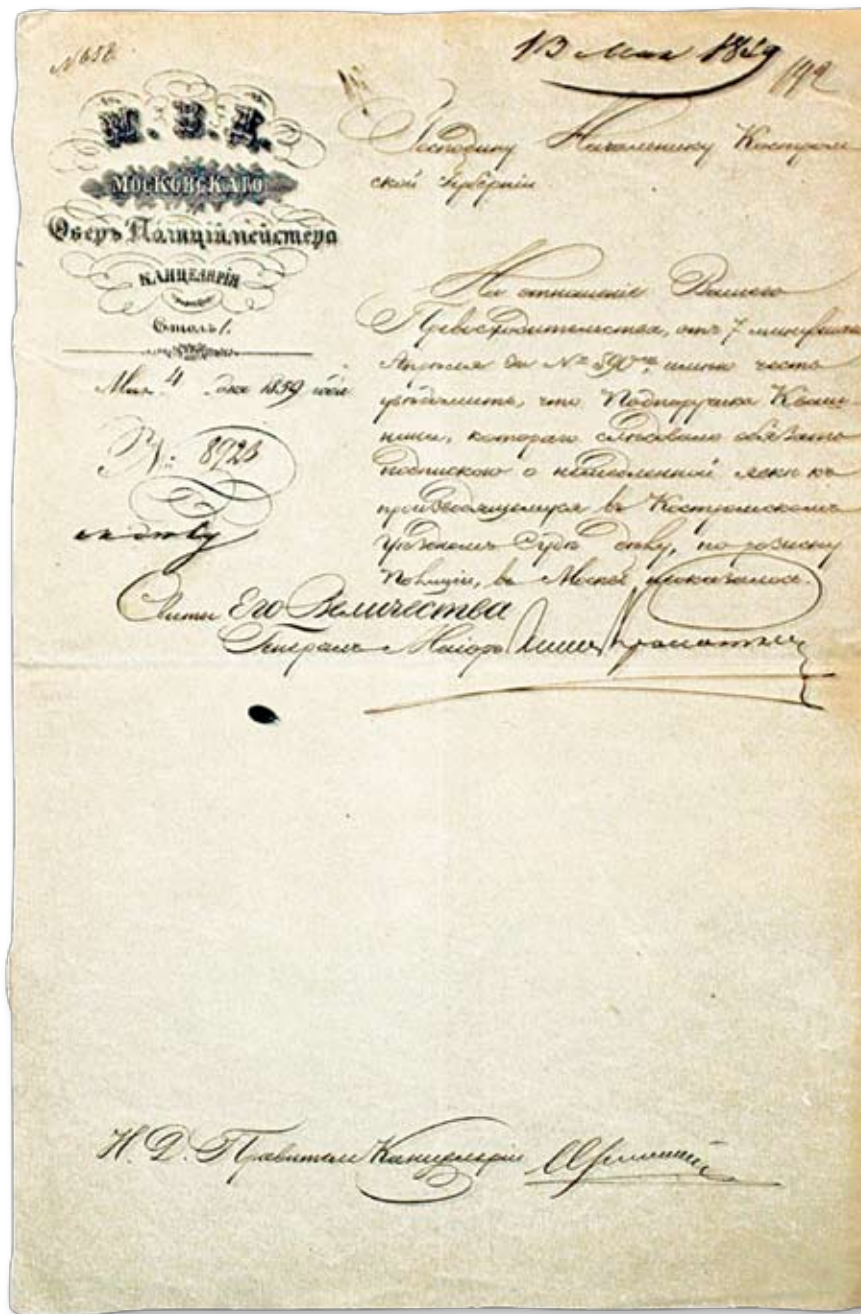 № 658.
13 Мая 1859
192
М. В. Д.
МОСКОВСКАГО
Оберъ Полиціймейстера
КАНЦЕЛЯРІЯ
Столъ 1.
Мая 4 дня 1859 года
№ 8923
Господину Начальнику Костром
ской Губерніи
На отношеніе Вашего
Превосходительства, отъ 7 минувшаго
Апрѣля за № 590, имѣю честь
увѣдомить, что Подпоручика
котораго слѣдовало обязать
подпискою о немедленной явкѣ къ
производящемуся въ Костромскомъ
Уѣздномъ Судѣ дѣлу, по розыску
Полиціи, въ Москвѣ неоказалось.
Свиты Его Величества
Генералъ Маіоръ Князь Кропоткинъ
къ дѣлу
И. Д. Правителя Канцеляріи